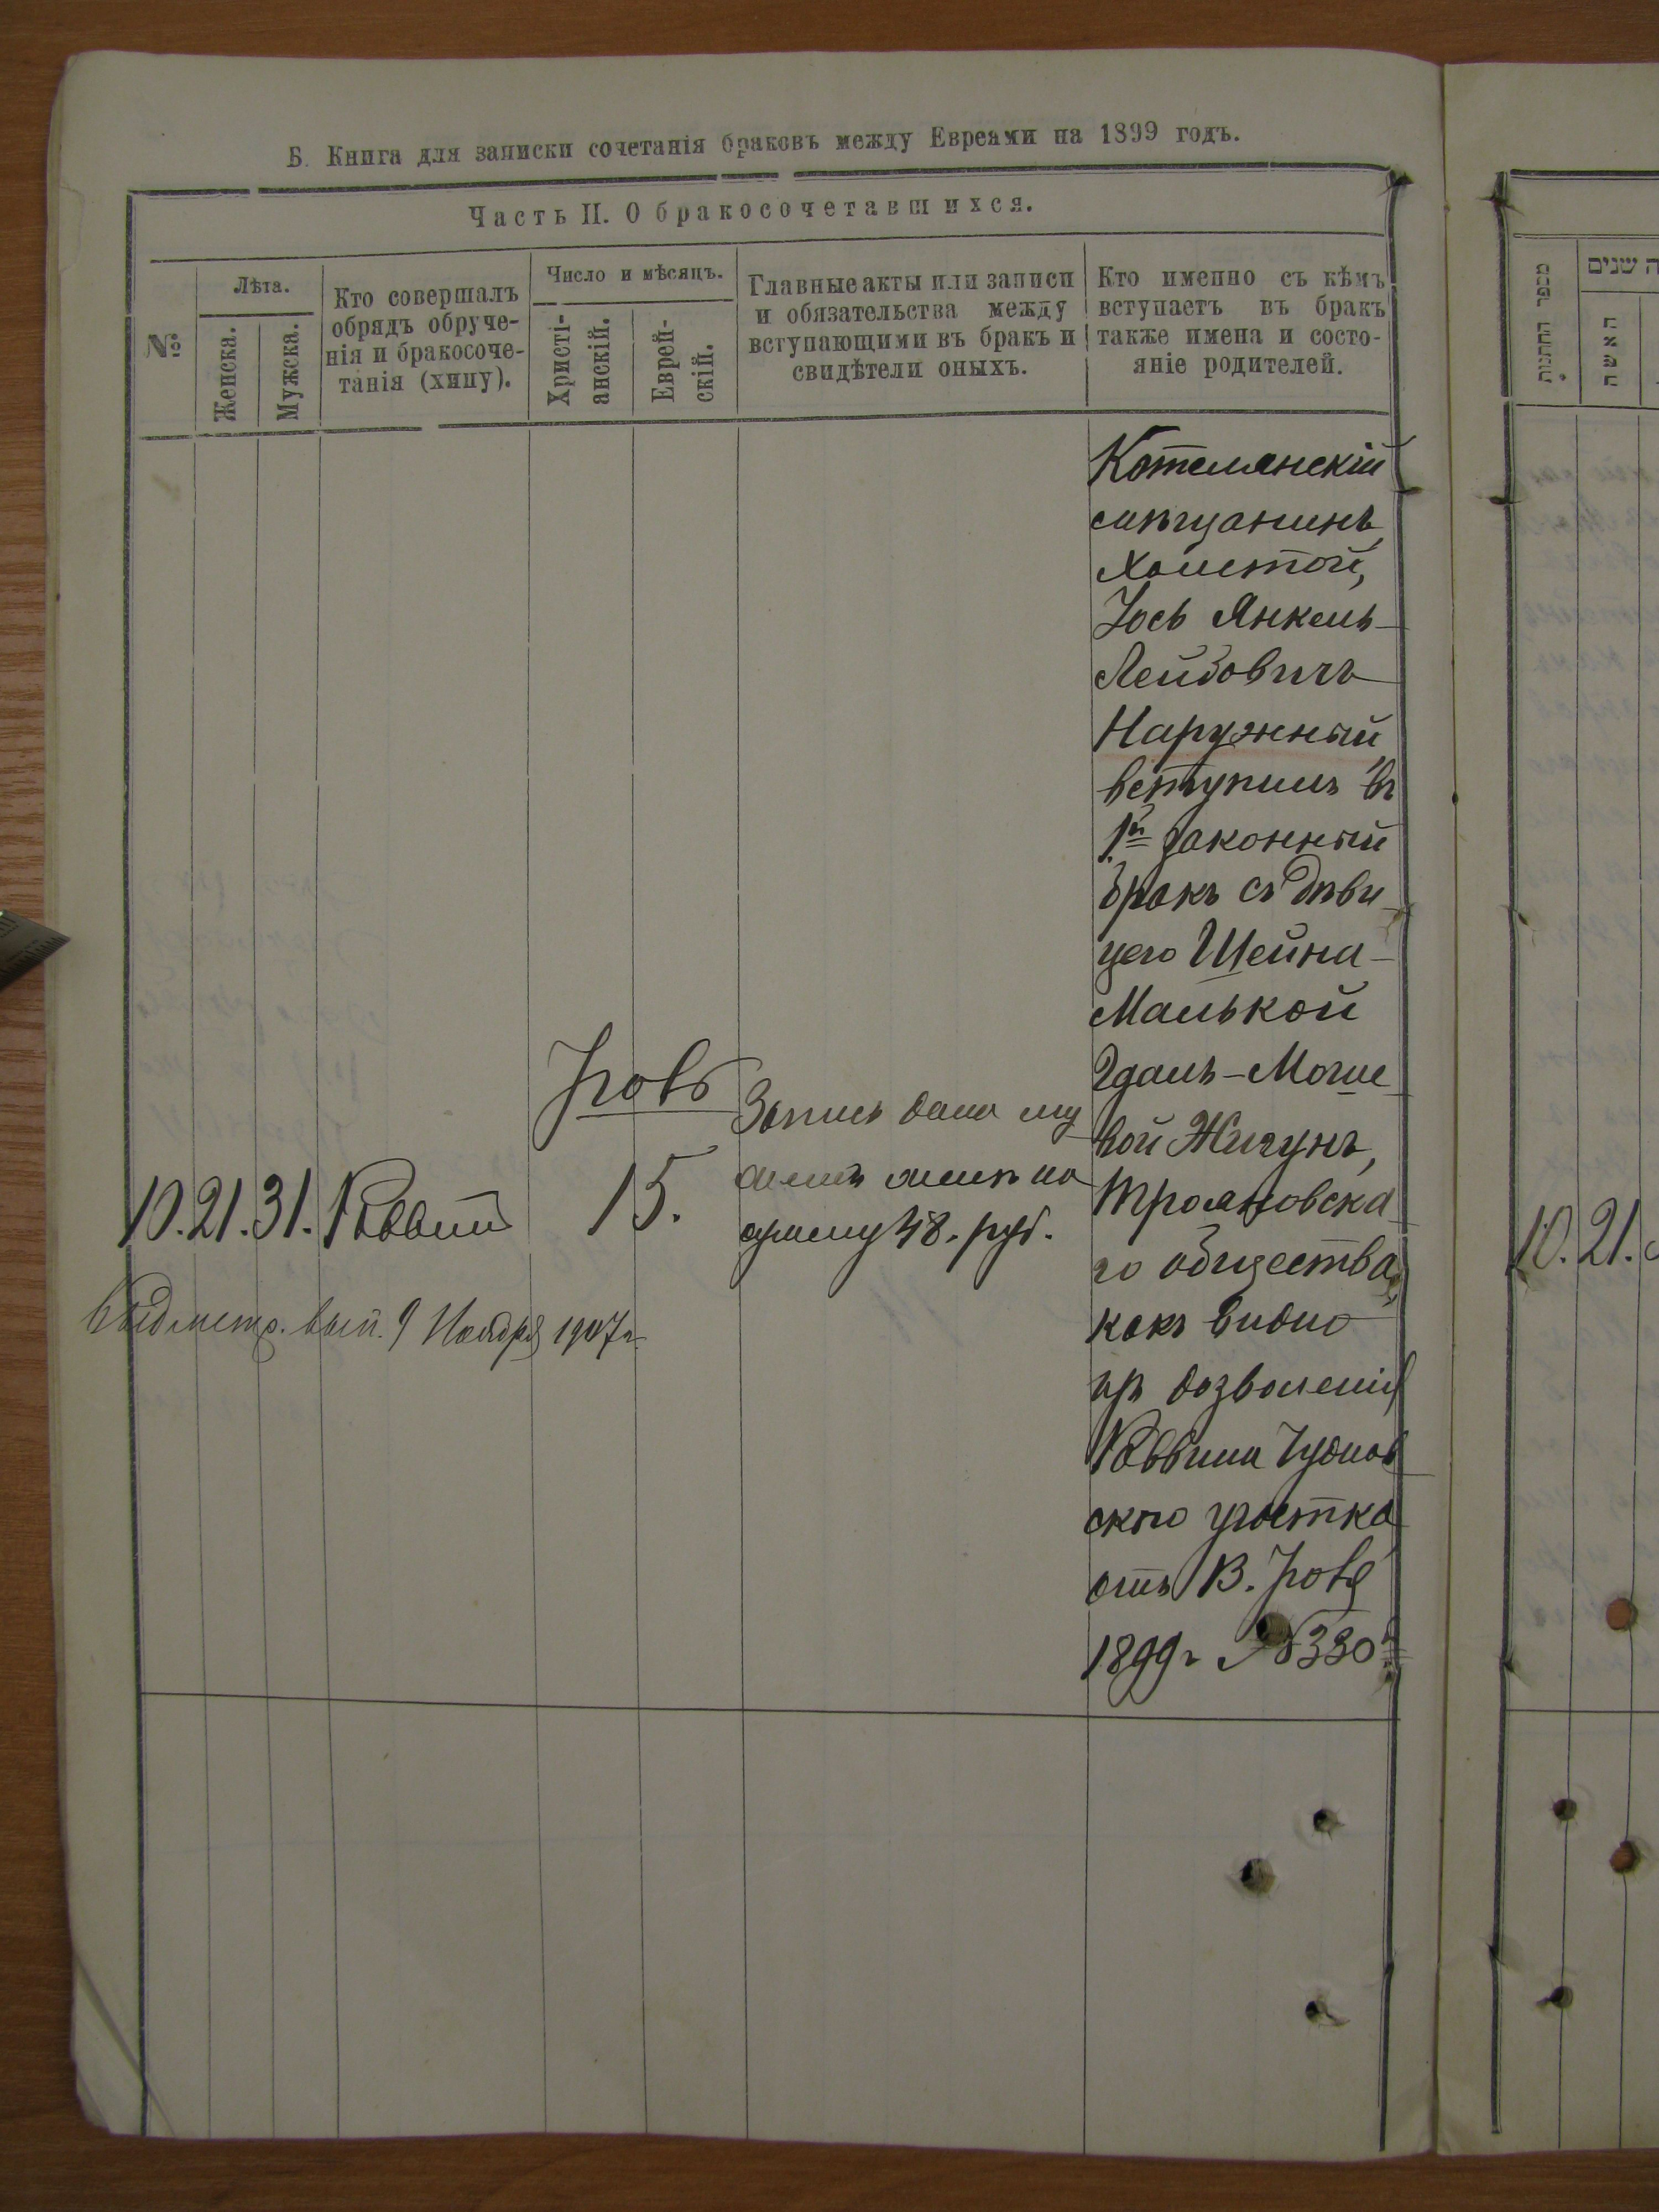 Б. Книга для записки сочетанія браковъ между Евреями на 1899 годъ.
Часть II. О бракосочетавшихся.
№
Лѣта.
Женска.
Мужска.
Кто совершалъ
обрядъ обруче-
нія и бракосоче-
танія (хипу).
Число и мѣсяцъ.
Христі-
анскій.
Еврей-
скій.
Главные акты или записи
и обязательства между
вступающими въ бракъ и
свидѣтели оныхъ.
Кто именно съ кѣмъ
вступаетъ въ бракъ
также имена и состо-
яніе родителей.
10. 21. 31. Раввинъ
15.
Запись дана му
жемъ женѣ на
сумму 48. руб.
Котелянскій
мѣщанинъ,
холостой,
Іось Янкель
Лейбовичъ
Наружный
вступилъ въ
1й законный
бракъ съ дѣви
цею Шейна-
Малькой
Гдаль-Мошк
вой Жигунъ,
Трояновска
го общества,
какъ видно
изъ дозволенія
Раввина Чуднов
скаго участка
отъ 13.
1899г № 330
Свид метр. выд. 9 Ноября 1907г
מספר החתונות
שנים
האשה
10. 21.